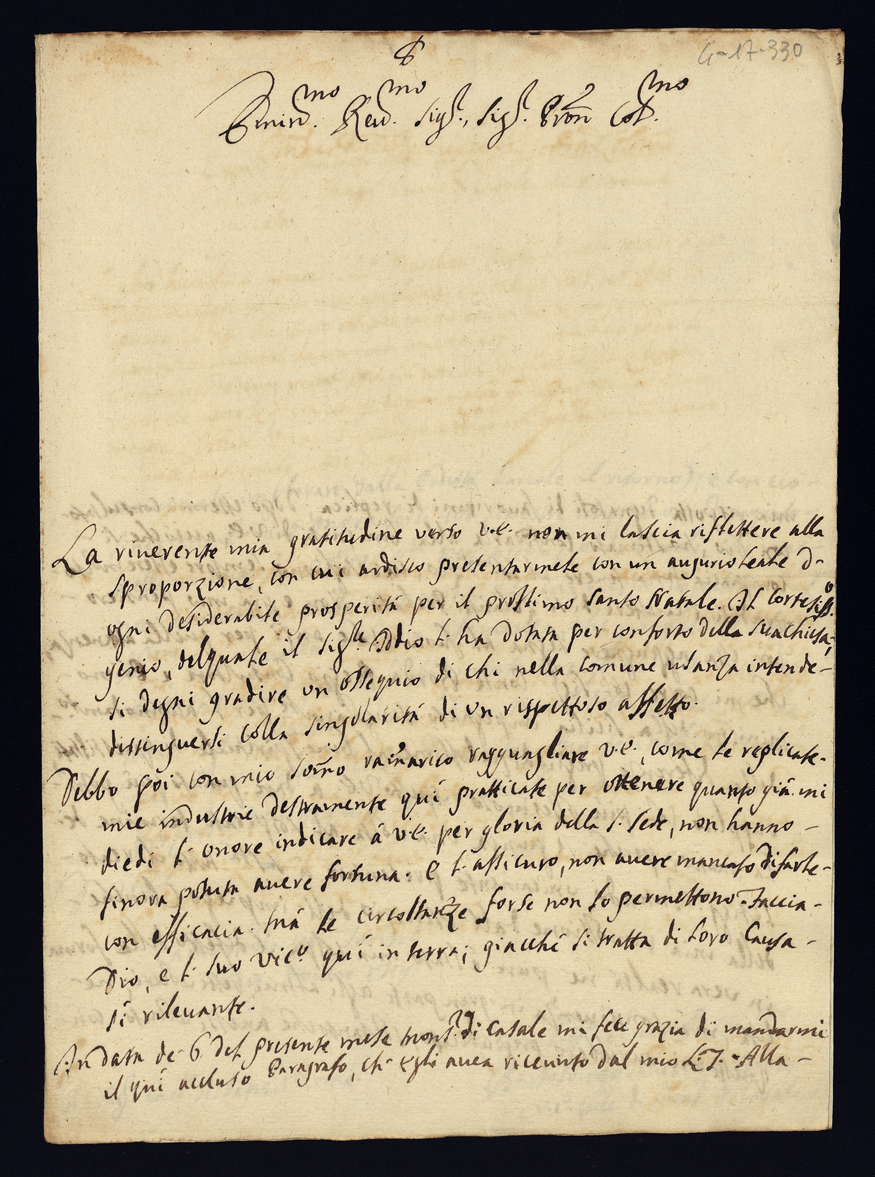 G-17-330
Emin.mo Reu.mo Sig.r, Sig.r Pron Col.mo
La riuerente mia gratitudine verso v.e. non mi lascia riflettere alla
sproporzione, con cui ardisco presentarmele con un augurio leale d-
ogni desiderabile prosperità per il prossimo santo Natale. Il cortesiss.o
genio, del quale il Sig.re Iddio l'ha dotata per conforto della sua chiesa,
si degni gradire un ossequio di chi nella comune usanza intende-
distinguersi colla singolarità di un rispettoso affetto.
Debbo poi con mio som̃o ram̃arico ragguagliare v.e., come le replicate-
mie industrie destramente quì pratticate per ottenere quanto già mi
diedi l'onore indicare à v.e. per gloria della S. Sede, non hanno-
finora potuta auere fortuna. E l'assicuro, non auere mancato di farle-
con efficacia. mà le circostanze forse non lo permettono. Faccia-
Dio, e l. suo Vic.o quì in terra; giacchè si tratta di loro Causa-
sì rileuante.
In data de' 6 del presente mese Mons.r di Casale mi fece grazia di mandarmi
il quì accluso Paragrafo, ch' Egli auea riceuuto dal mio Alla-